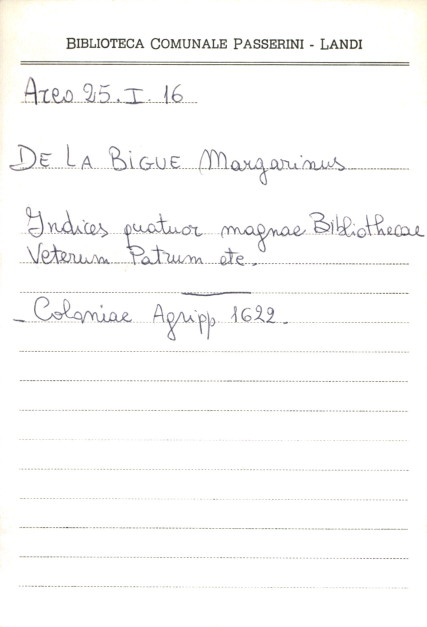 BIBLIOTECA COMUNALE PASSERINI - LANDI
Arco 25. I. 16
DE LA BIGUE Margarinus
Indices quatuor magnae Bibliothecae
Veterum Patrum etc.
- Coloniae Agripp 1622.